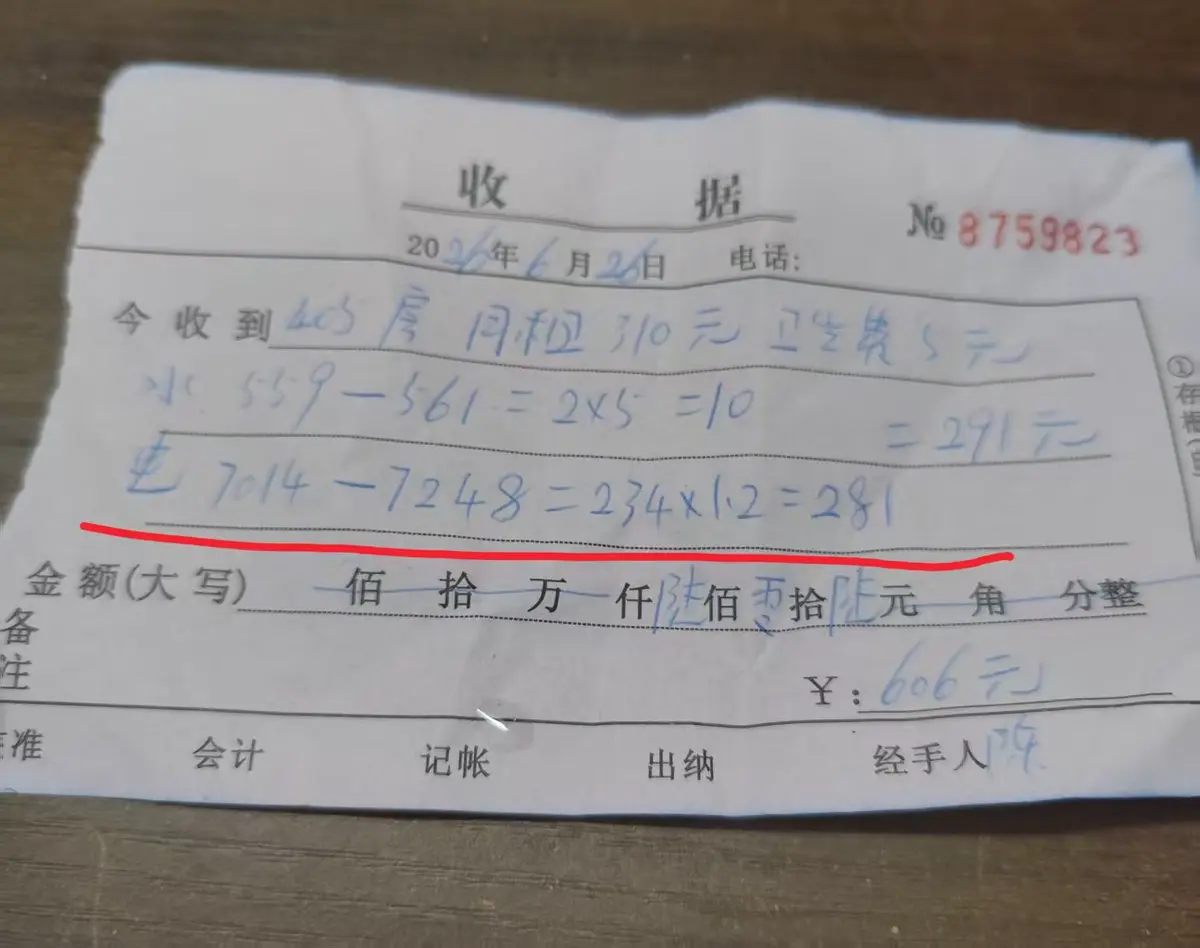 收 据
№ 8759823
2026年6月26日 电话:
今收到 405房 月租310元 卫生费5元
水 559-561=2×5=10
=291元
电 7014-7248=234×1.2=281
金额(大写) 佰 拾 万 仟陆佰零拾陆元 角 分整
备注
¥: 606元
准 会计 记帐 出纳 经手人 陈
①存根